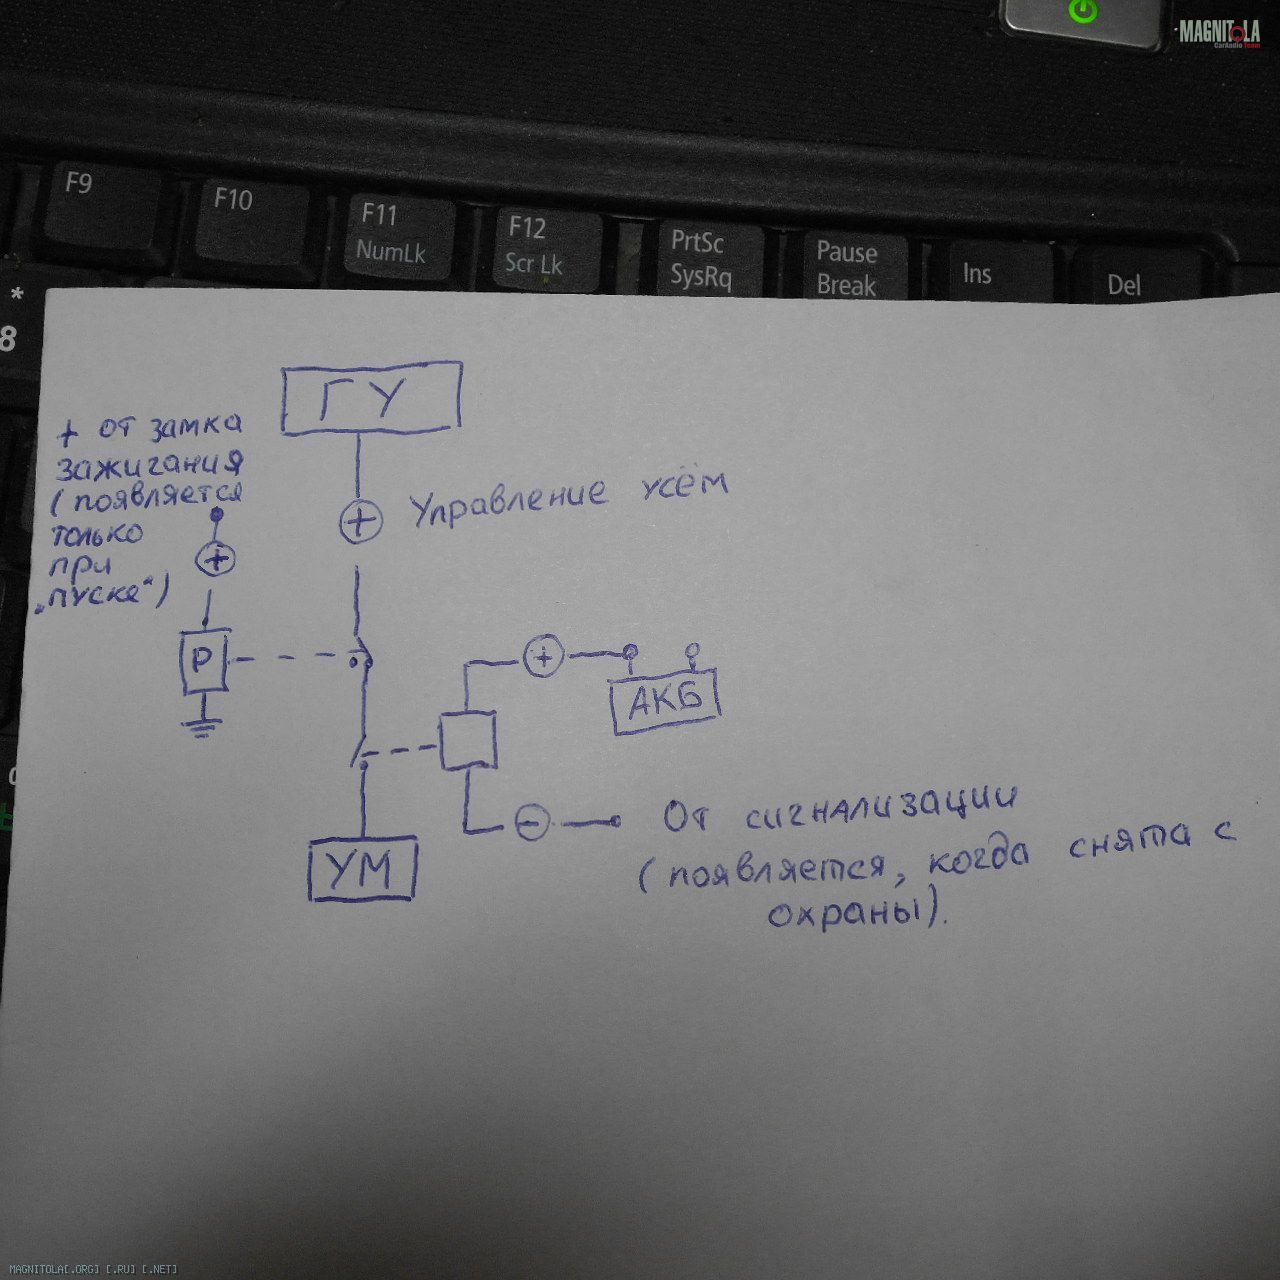 MAGNITOLA
CarAudio Team
F9
F10
F11
NumLk
F12
Scr Lk
PrtSc
SysRq
Pause
Break
Ins
Del
*
8
ГУ
+ от замка
зажигания
(появляется
только
при
„пуске“)
+
Управление усём
+
Р
+
АКБ
УМ
–
От сигнализации
(появляется, когда снята с
охраны).
MAGNITOLA[.ORG] [.RU] [.NET]